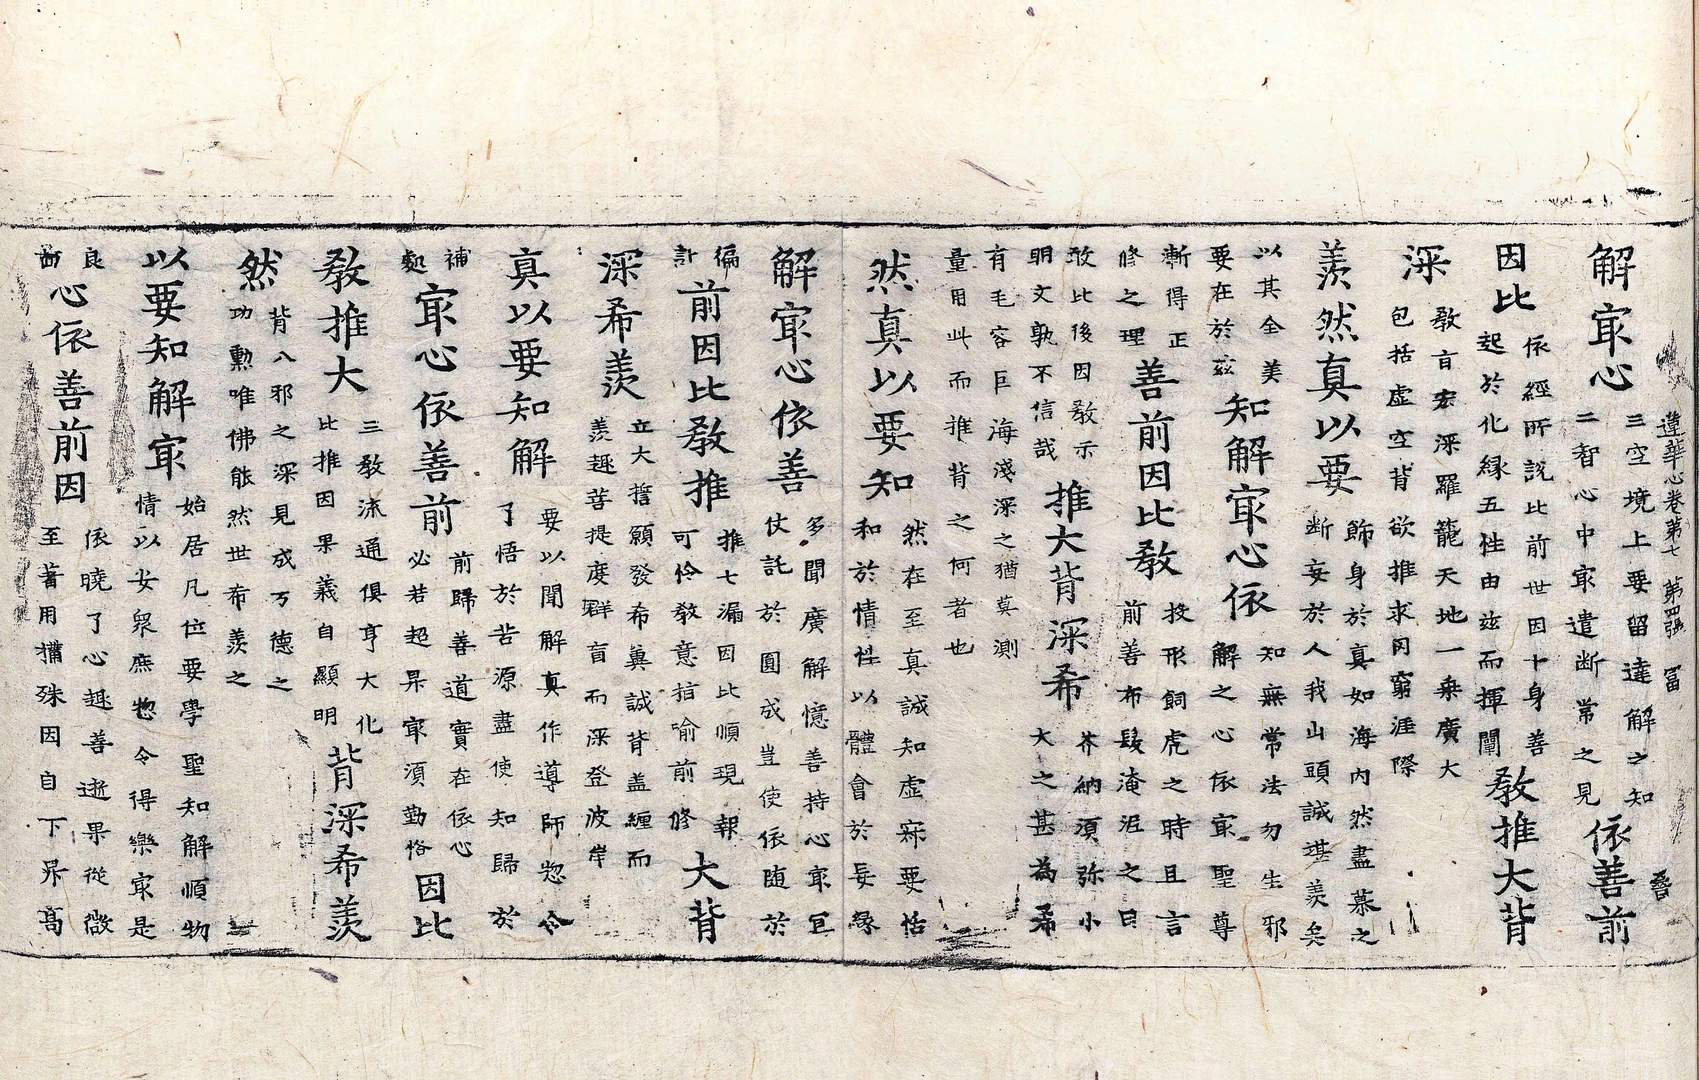 蓮華心卷第七 第四張 冨
解㝡心 三空境上要留達解之知 二智心中㝡遣断常之見 依善前
因比 依經所説比前世因十身善 起於化縁五性由兹而揮闡 教推大背
深 教盲宏深羅籠天地一乗廣大 包括虛空背欲推求罔窮涯際
羨然真以要 飾身於真如海內然盡慕之 断妄於人我山頭誠堪羨矣
以其全美 要在於兹 知解㝡心依 知無常法勿生邪 解之心依㝡聖尊
漸得正 修之理 善前因比教 投形飼虎之時且言 前善布髮淹泥之日
敢比後因教示 明文孰不信哉 推大背深希 芥納湏弥小 大之甚為希
有毛容巨海淺深之猶莫測
量用此而推背之何者也
然真以要知 然在至真誠知虛寂要恬 和於情性以體會於妄縁
解㝡心依善 多聞廣解憶善持心㝡亘 仗託於圓成豈使依随於
徧 計 前因比教推 推七漏因比順現報 可怜教意指喻前修 大背
深希羨 立大誓願發希冀誠背盖纏而 羨趣菩提度群盲而深登波岸
真以要知解 要以聞解真作導師惣令 了悟於苦源盡使知歸於
補 處 㝡心依善前 前歸善道實在依心 必若超昇㝡湏勤恪 因比
教推大 三教流通俱亨大化 比推因果義自顯明 背深希羨
然 背八邪之深見成万德之 功勲唯佛能然世希羨之
以要知解㝡 始居凡位要學聖知解順物 情以安衆庶惣令得樂㝡是
良 啚 心依善前因 依曉了心趣善逝果從微 至著用攜殊因自下昇高